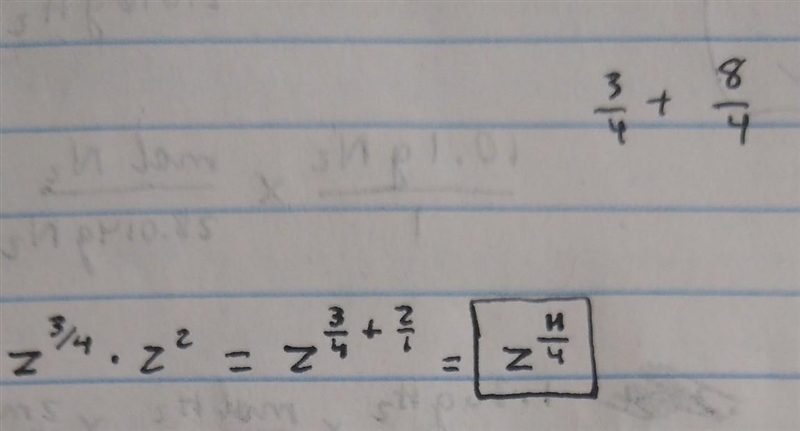 3/4 + 8/4
z^3/4 · z^2 = z^(3/4 + 2/1) = z^11/4